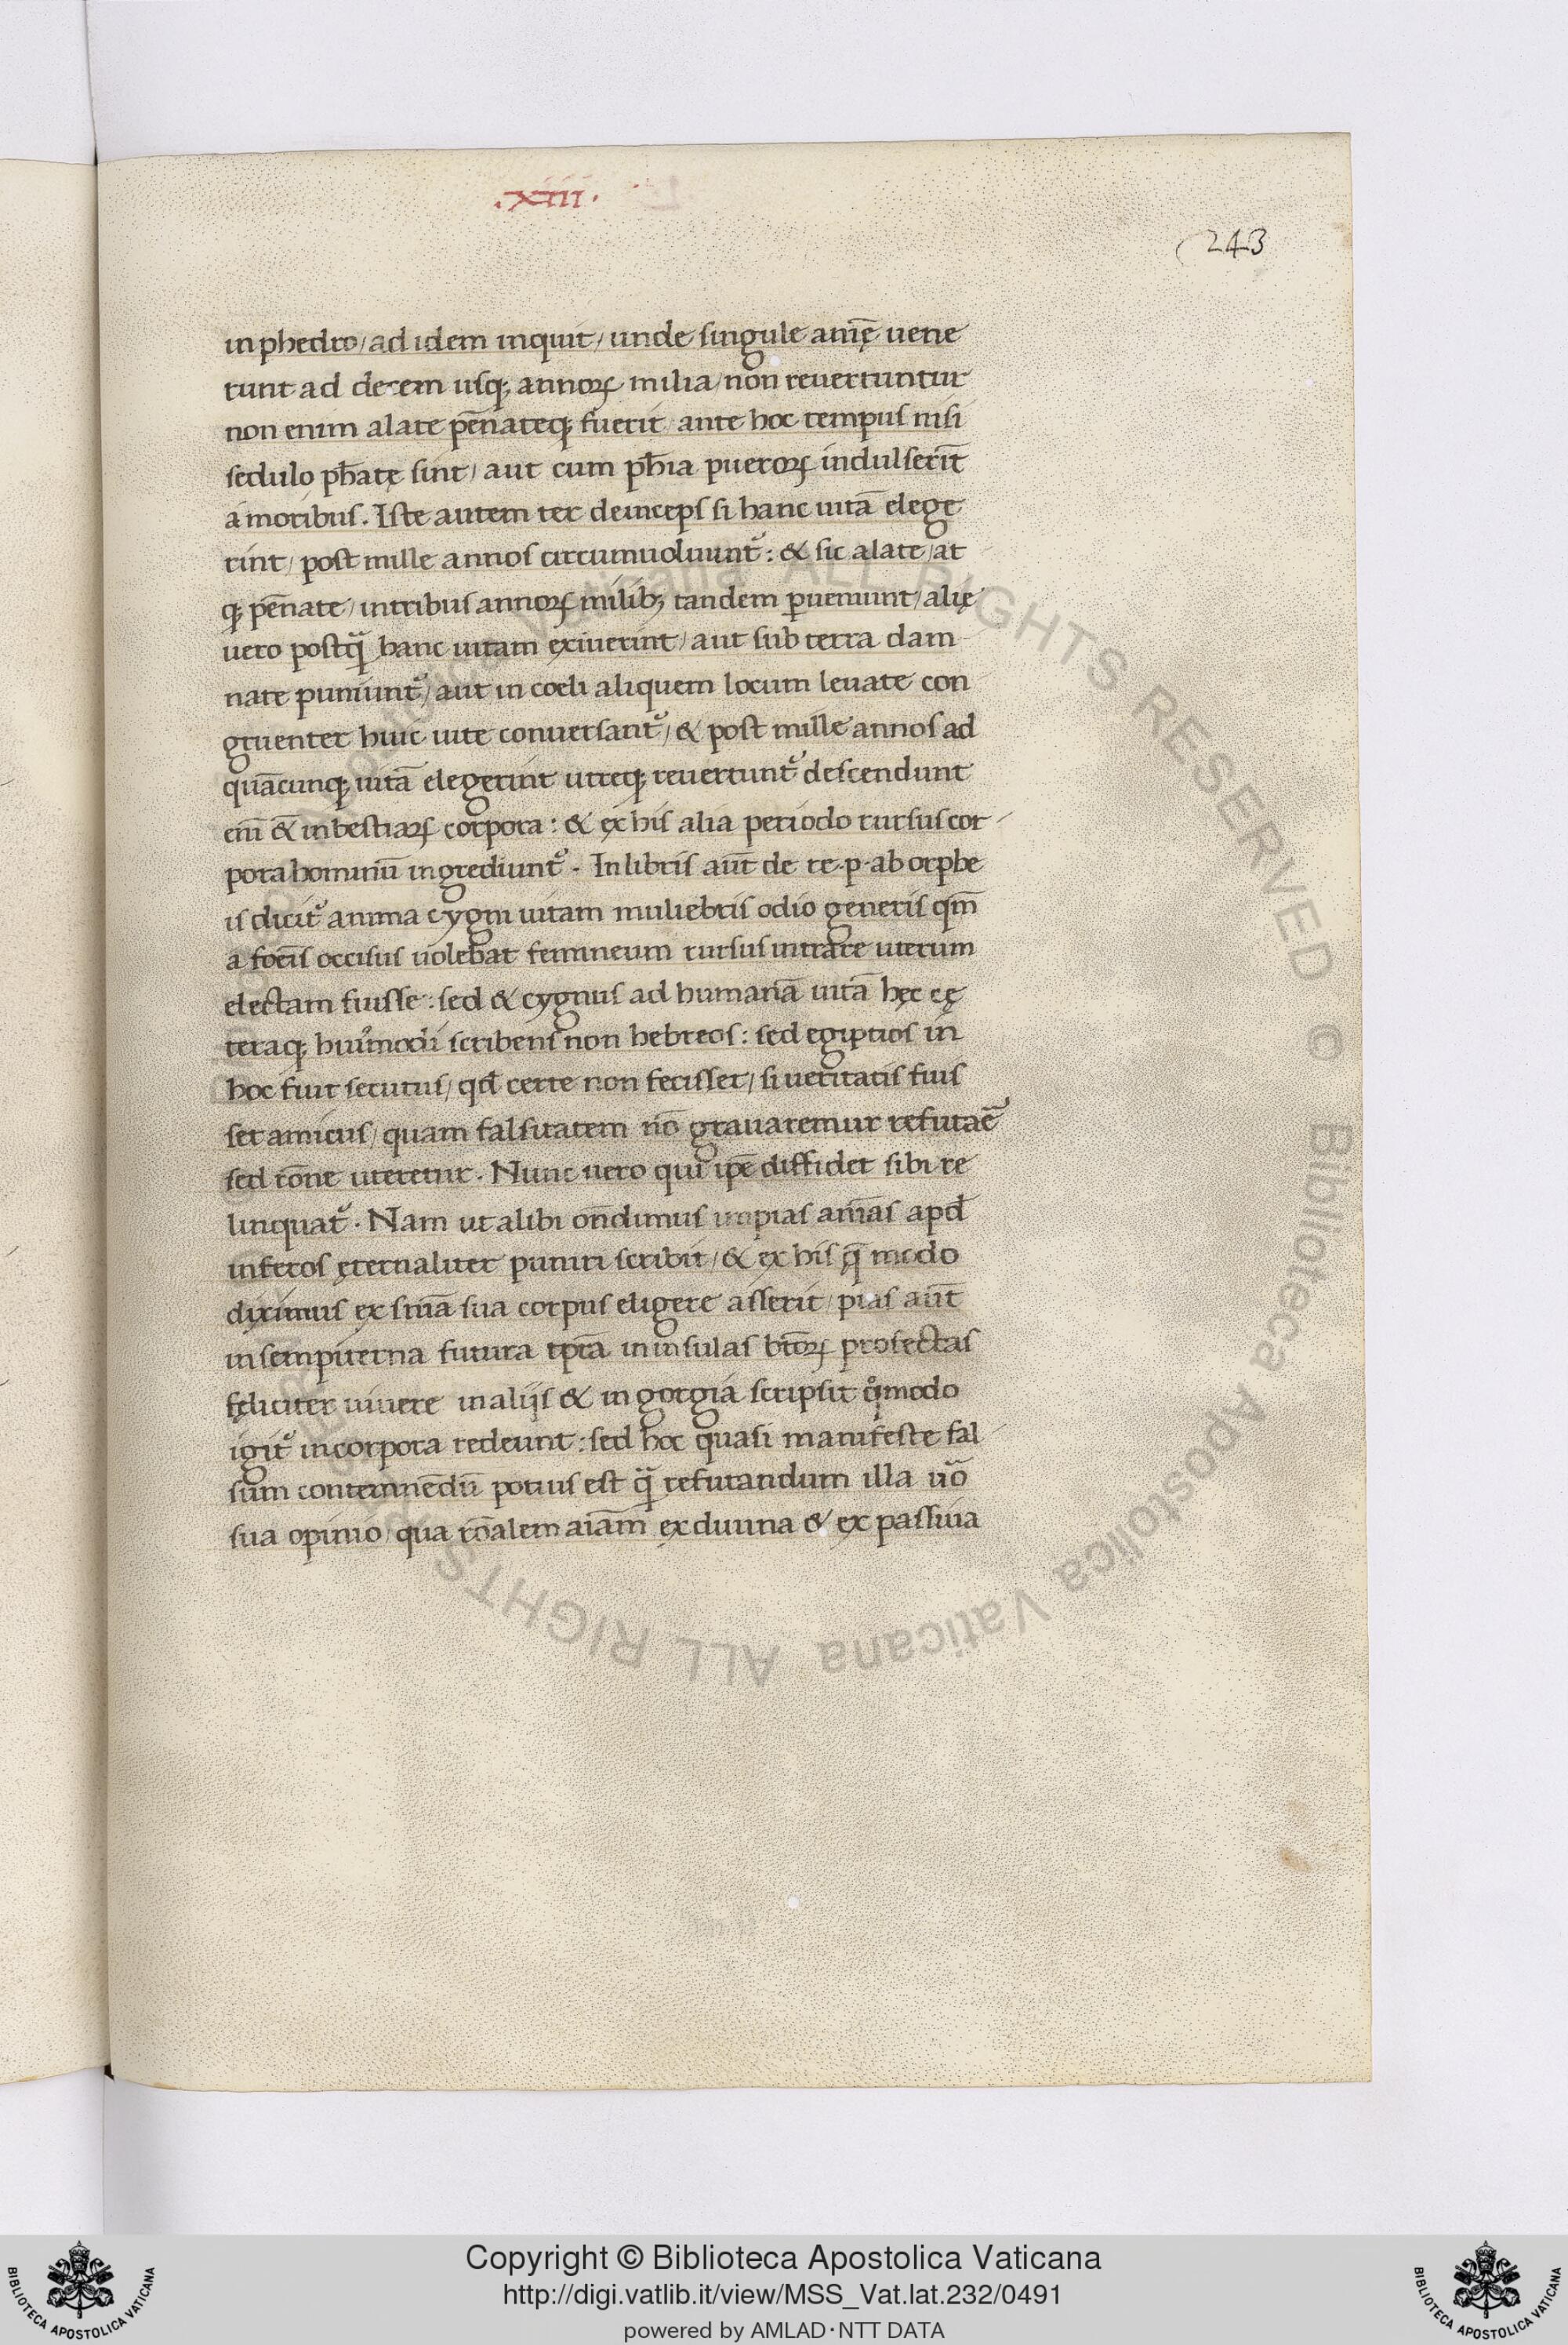 .xiii.
243
in phedro/ ad idem inquit/ unde singule anīę uene
runt ad decem usq; annoꝝ milia/ non reuertuntur
non enim alate pēnateq; fuerīt/ ante hoc tempus nisi
sedulo ph̄atę sint/ aut cum ph̄ia pueroꝝ indulserīt
amoribus. Iste autem ter deinceps si hanc uitā elege
rint/ post mille annos circumuoluunt᷑: & sic alate/ at
q; pēnate/ in tribus annoꝝ milib; tandem ꝑueniunt/ alię
uero postq̄ hanc uitam exiuerint/ aut sub terra dam
nate puniunt᷑/ aut in coeli aliquem locum leuate con
gruenter huic uite conuersant᷑/ & post mille annos ad
quācunq; uitā elegerint utreq; reuertunt᷑ descendunt
enī & in bestiaꝝ corpora: & ex his alia periodo rursus cor
pora hominū ingrediunt᷑. In libris aūt de re.p. ab orphe
is dicit᷑ anima cygni uitam muliebris odio generis qm̄
a foeīs occisus uolebat femineum rursus intrare uterum
electam fuisse: sed & cygnus ad humanā uitā hęc cę
teraq; huiusmodi scribens non hebreos: sed egiptios in
hoc fuit secutus/ qd̄ certe non fecisset/ si ueritatis fuis
set amicus/ quam falsitatem nō grauaremur refutar̄e
sed rōne uteretur. Nunc uero qui ip̄e diffidet sibi re
linquat᷑. Nam ut alibi ōndimus impias anīas apd̄
inferos ęternaliter puniri scribit/ & ex his q̄ modo
diximus ex sn̄ia sua corpus eligere asserit/ pias aūt
in sempiterna futura tp̄ra in insulas btōꝝ profectas
feliciter uiuere in alijs & in gorgia scripsit qͦmodo
igit᷑ in corpora redeunt: sed hoc quasi manifeste fal
sum contemnēdū potius est q̄ refutandum illa uō
sua opinio/ qua rōnalem aīam ex diuina & ex passiua
Copyright © Biblioteca Apostolica Vaticana
http://digi.vatlib.it/view/MSS_Vat.lat.232/0491
powered by AMLAD·NTT DATA